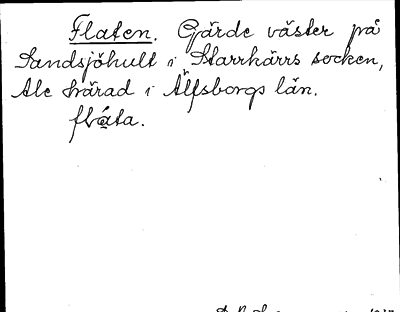 Flaten. Gärde väster på
Sandsjöhult i Starrkärrs socken,
Ale härad i Älfsborgs län.